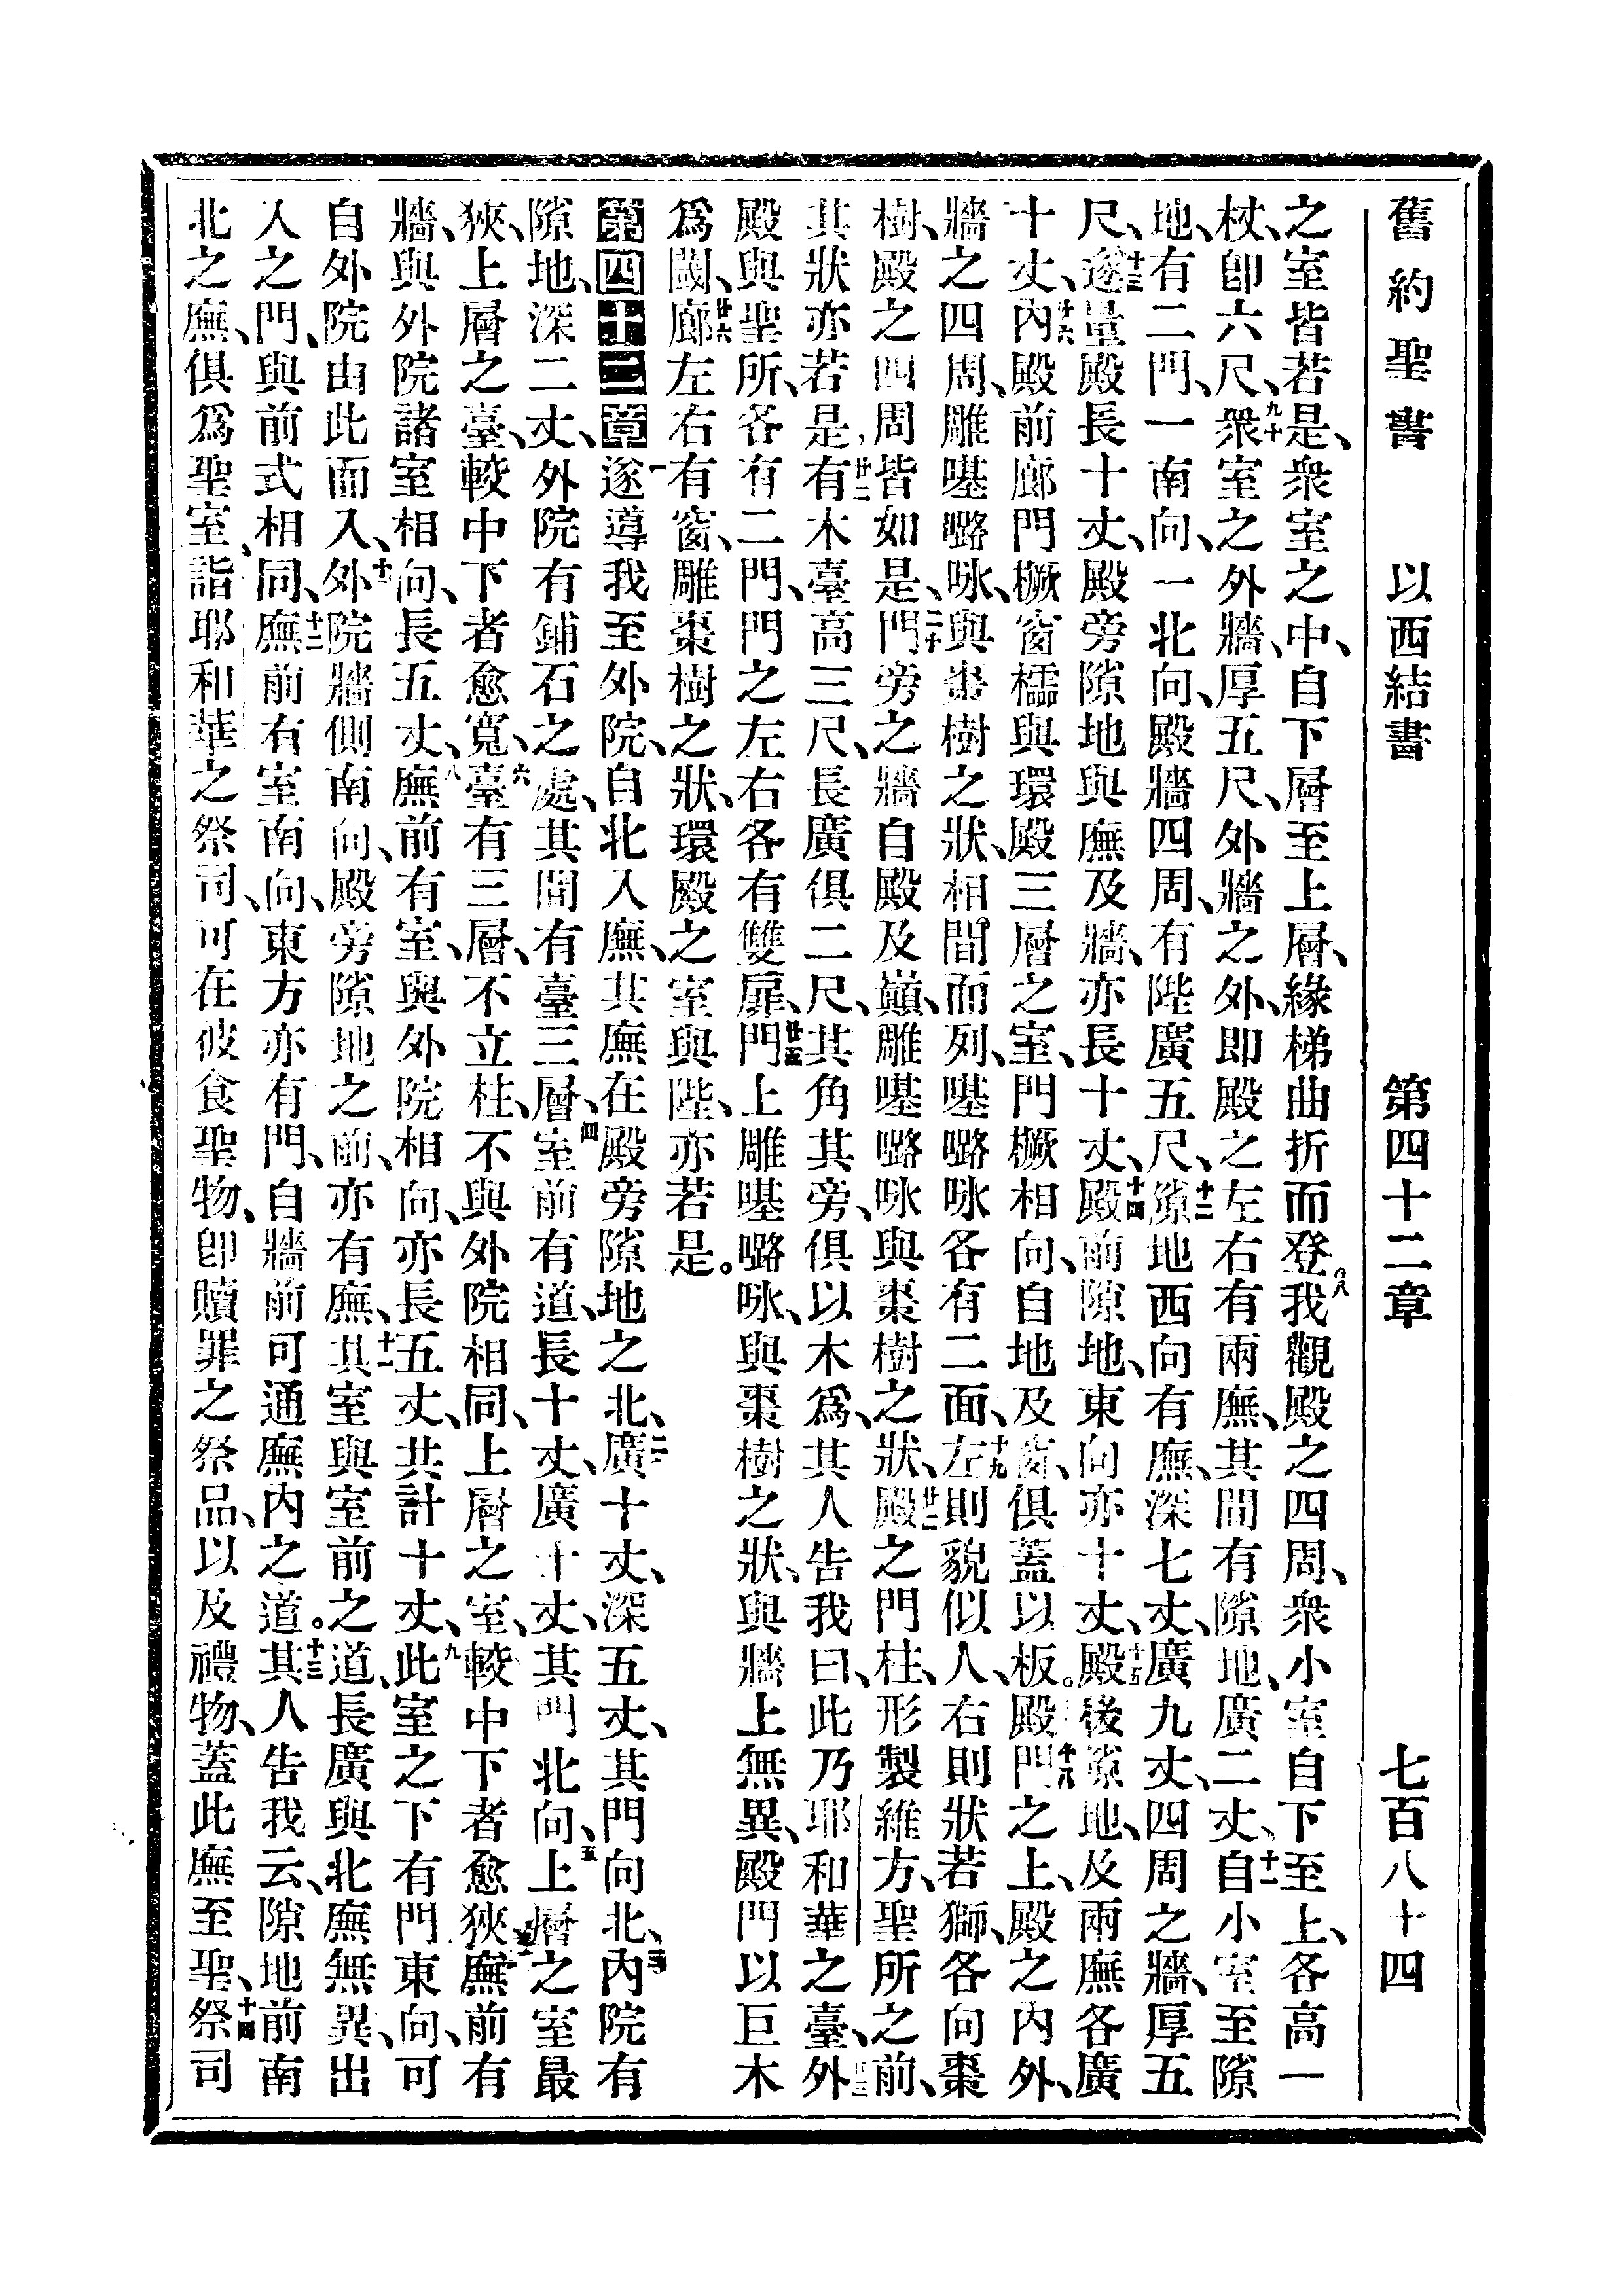 舊約聖書 以西結書 第四十二章 七百八十四
之室皆若是、衆室之中、自下層至上層、緣梯曲折而登。八我觀殿之四周、衆小室自下至上、各高一
杖、卽六尺、九十衆室之外牆、厚五尺、外牆之外、即殿之左右有兩廡、其間有隙地、廣二丈、十一自小室至隙
地、有二門、一南向、一北向、殿牆四周、有陛廣五尺、十二隙地西向有廡、深七丈、廣九丈、四周之牆、厚五
尺、十三遂量殿長十丈、殿旁隙地與廡及牆、亦長十丈、十四殿前隙地、東向亦十丈、十五殿後隙地、及兩廡各廣
十丈、十六內殿前廊門橛窗櫺與環殿三層之室、門橛相向、自地及窗、俱蓋以板。十八殿門之上、殿之內外、
牆之四周、雕𠸄㘔咏、與棗樹之狀、相間而列、𠸄㘔咏各有二面、十九左則貌似人、右則狀若獅、各向棗
樹、殿之四周皆如是、二十門旁之牆自殿及巔、雕𠸄㘔咏與棗樹之狀、廿一殿之門柱、形製維方、聖所之前、
其狀亦若是、廿二有木臺高三尺、長廣俱二尺、其角其旁、俱以木爲、其人告我曰、此乃耶和華之臺、廿三外
殿與聖所、各有二門、門之左右各有雙扉、廿五門上雕𠸄㘔咏、與棗樹之狀、與牆上無異、殿門以巨木
爲閾、廿六廊左右有窗、雕棗樹之狀、環殿之室與陛、亦若是。
第四十二章一遂導我至外院、自北入廡、其廡在殿旁隙地之北、二廣十丈、深五丈、其門向北、三內院有
隙地、深二丈、外院有鋪石之處、其間有臺三層、四室前有道、長十丈、廣十丈、其門北向、五上層之室最
狹、上層之臺、較中下者愈寬、六臺有三層、不立柱、不與外院相同、上層之室、較中下者愈狹、廡前有
牆、與外院諸室相向、長五丈、八廡前有室、與外院相向、亦長五丈、共計十丈、九此室之下有門東向、可
自外院由此而入、十外院牆側南向、殿旁隙地之前、亦有廡、十一其室與室前之道、長廣與北廡無異、出
入之門、與前式相同、十二廡前有室南向、東方亦有門、自牆前可通廡內之道。十三其人告我云、隙地前南
北之廡、俱爲聖室、詣耶和華之祭司、可在彼食聖物、卽贖罪之祭品、以及禮物、蓋此廡至聖、十四祭司